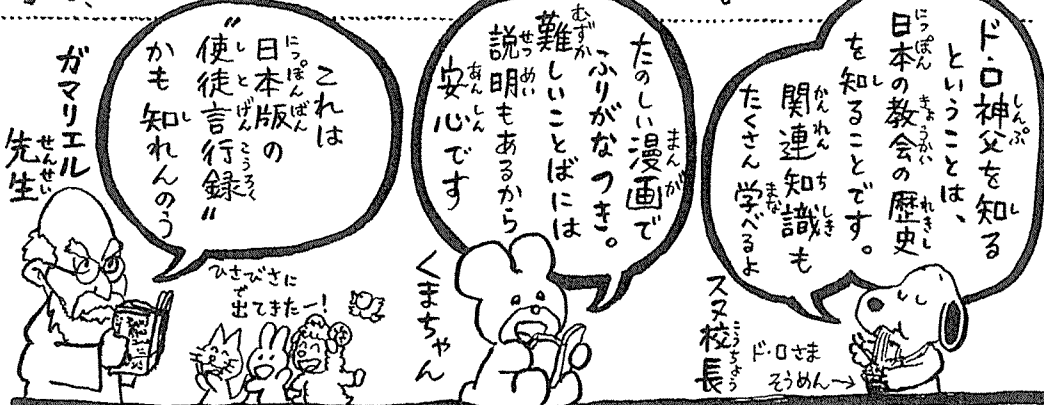 ド・ロ神父を知る
ということは、
日本の教会の歴史
を知ることです。
関連知識も
たくさん学べるよ
スヌ校長
ド・ロさま
そうめん→
たのしい漫画で
ふりがなつき。
難しいことばには
説明もあるから
安心です
くまちゃん
これは
日本版の
"使徒言行録"
かも知れんのう
ガマリエル
先生
ひさびさに
出てきたー!